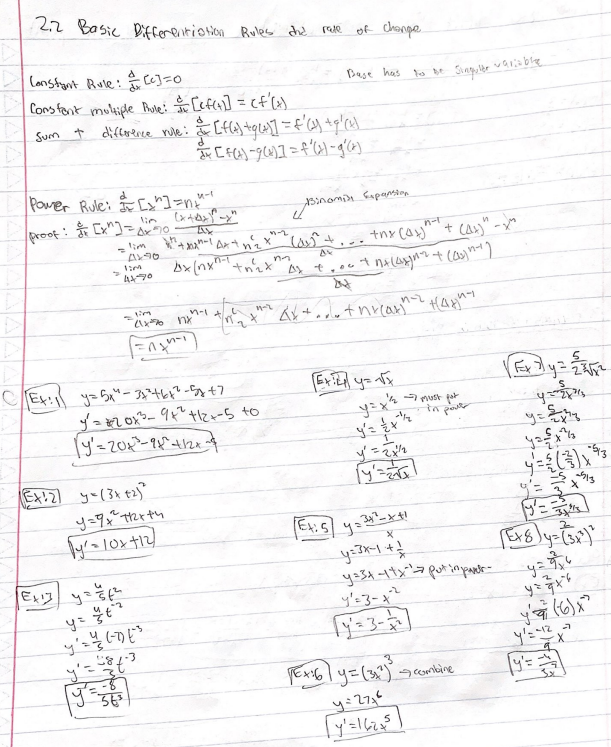 2.2 Basic Differentiation Rules and rate of change
Constant Rule: d/dx [c] = 0
Base has to be Singular variable
Constant multiple Rule: d/dx [cf(x)] = cf'(x)
sum + difference rule: d/dx [f(x)+g(x)] = f'(x)+g'(x)
d/dx [f(x)-g(x)] = f'(x)-g'(x)
Power Rule: d/dx [x^n] = nx^n-1
Binomial Expansion
proof: d/dx [x^n] = lim Δx→0 (x+Δx)^n - x^n / Δx
= lim Δx→0 x^n + nx^n-1 Δx + nC2 x^n-2 (Δx)^n + ... + nx(Δx)^n-1 + (Δx)^n - x^n / Δx
= lim Δx→0 Δx(nx^n-1 + nC2 x^n-2 Δx + ... + nx(Δx)^n-2 + (Δx)^n-1) / Δx
= lim Δx→0 nx^n-1 + [nC2 x^n-2 Δx + ... + nx(Δx)^n-2 + (Δx)^n-1
= nx^n-1
Ex:1 y = 5x⁴ - 3x³ + 6x² - 5x + 7
y' = 20x³ - 9x² + 12x - 5 + 0
y' = 20x³ - 9x² + 12x - 5
Ex:2 y = (3x+2)²
y = 9x² + 12x + 4
y' = 10x + 12
Ex:3 y = 4/5t²
y = 4/5 t^-2
y' = 4/5 (-2) t^-3
y' = -8/5 t^-3
y' = -8/5t³
Ex:4 y = √x
y = x^1/2 → must put in power
y' = 1/2 x^-1/2
y' = 1/2x^1/2
y' = 1/2√x
Ex:5 y = 3x²-x+1 / x
y = 3x - 1 + 1/x
y = 3x - 1 + x^-1 → put in power
y' = 3 - x^-2
y' = 3 - 1/x²
Ex:6 y = (3x²)³ → combine
y = 27x⁶
y' = 162x⁵
Ex:7 y = 5/2∛x²
y = 5/2x^2/3
y = 5/2x^2/3
y = 5/2 x^-2/3
y' = 5/2 (-2/3) x^-5/3
y' = -5/3 x^-5/3
y' = -5/3x^5/3
Ex:8 y = 2/(3x³)²
y = 2/9x⁶
y = 2/9 x^-6
y' = 2/9 (-6) x^-7
y' = -12/9 x^-7
y' = -4/3x⁷